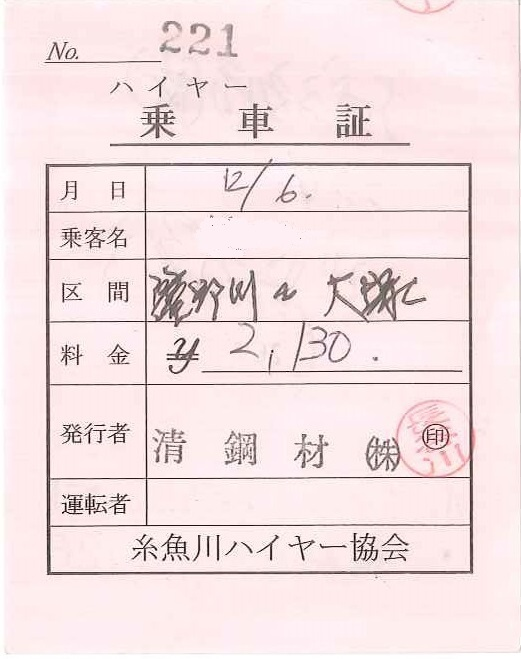 No. 221
ハイヤー
乗車証
月日 12/6.
乗客名
区間 川 大
料金 ¥ 2,130.
発行者 清鋼材㈱ ㊞
運転者
糸魚川ハイヤー協会